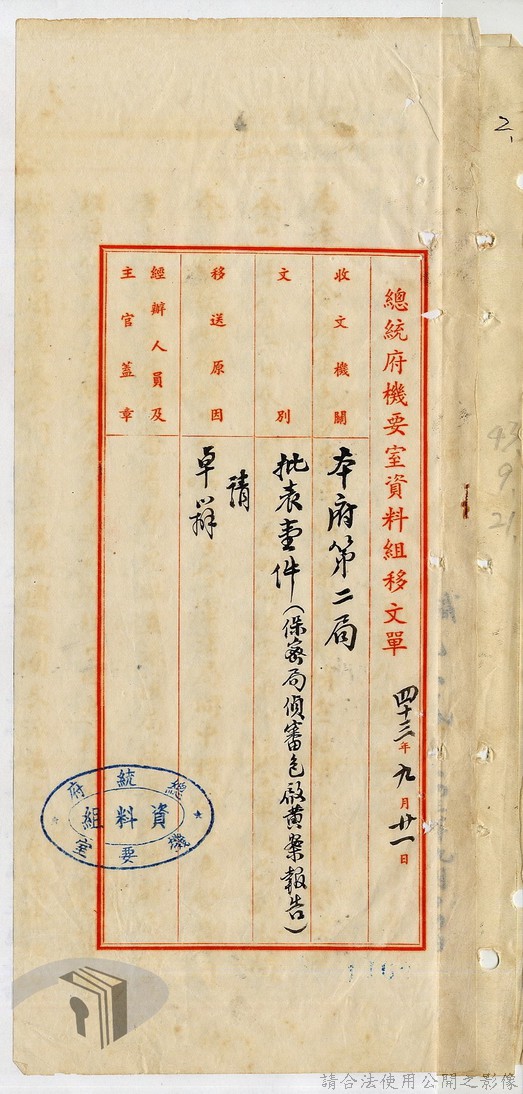 總統府機要室資料組移文單
四十三年九月廿一日
收文機關
本府第二局
文別
批表壹件(保密局偵審包啟黃案報告)
移送原因
請
卓辦
經辦人員及
主官蓋章
總統府機要室
資料組
2
43
9
21
請合法使用公開之影像